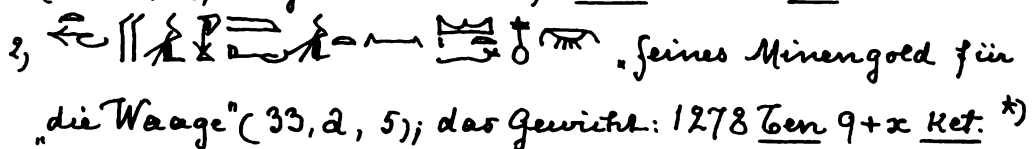 2, „feines Minengold für
„die Waage“ (33, 2, 5); das Gewicht: 1278 Ten 9+x Ket. *)